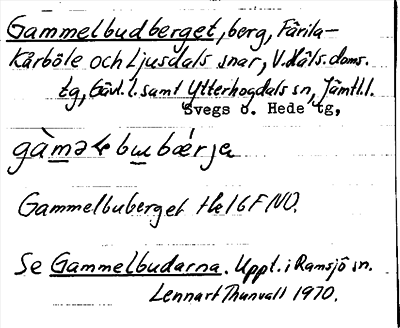 Gammelbudberget, berg, Färila-
Kårböle och Ljusdals snar, V. Häls. doms.
tg, Gävl. l. samt Ytterhogdals sn, Jämtl. l.
Svegs o. Hede tg,
Gammelbuberget tk 16F NO.
Se Gammelbudarna. Uppt. i Ramsjö sn.
Lennart Thunvall 1970.